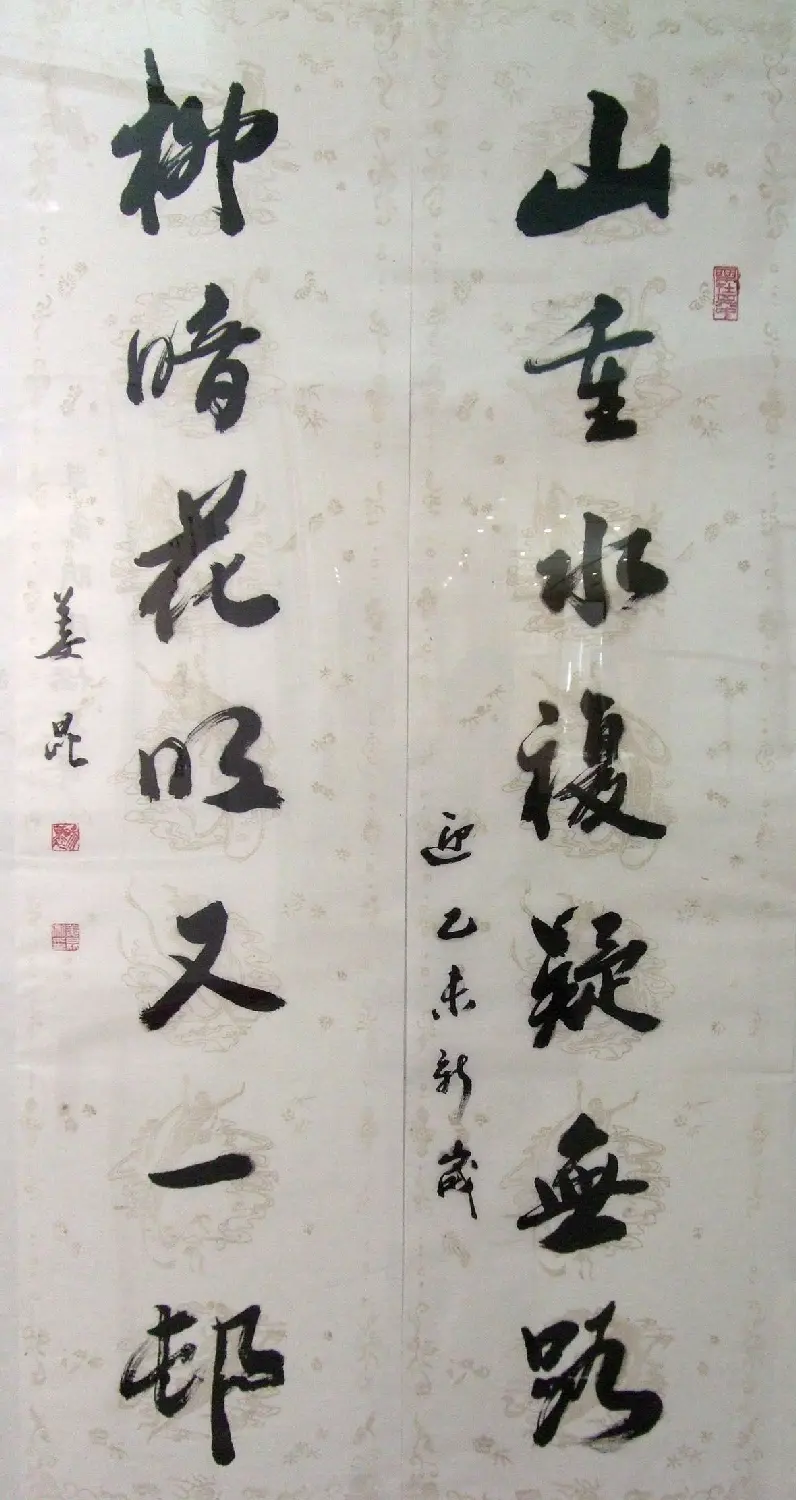 山重水複疑無路
迎乙未新歲
柳暗花明又一邨
姜昆